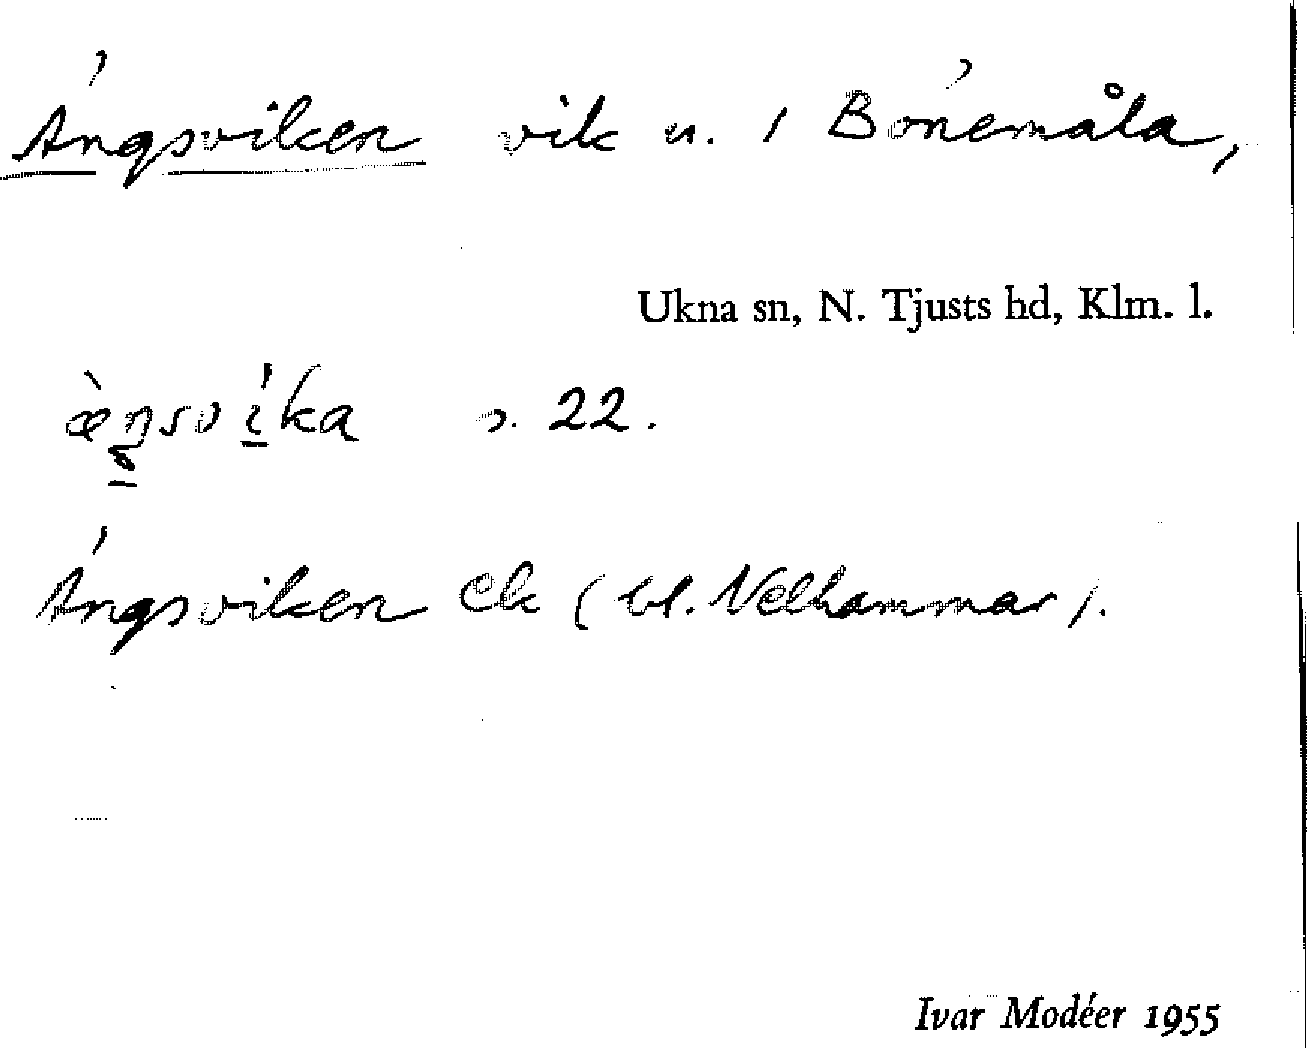 Ängsviken vik u. / Bönemåla,
Ukna sn, N. Tjusts hd, Klm. l.
æ̀ŋsvíka s. 22.
Ängsviken Ek (bl. Nelhammar).
Ivar Modéer 1955